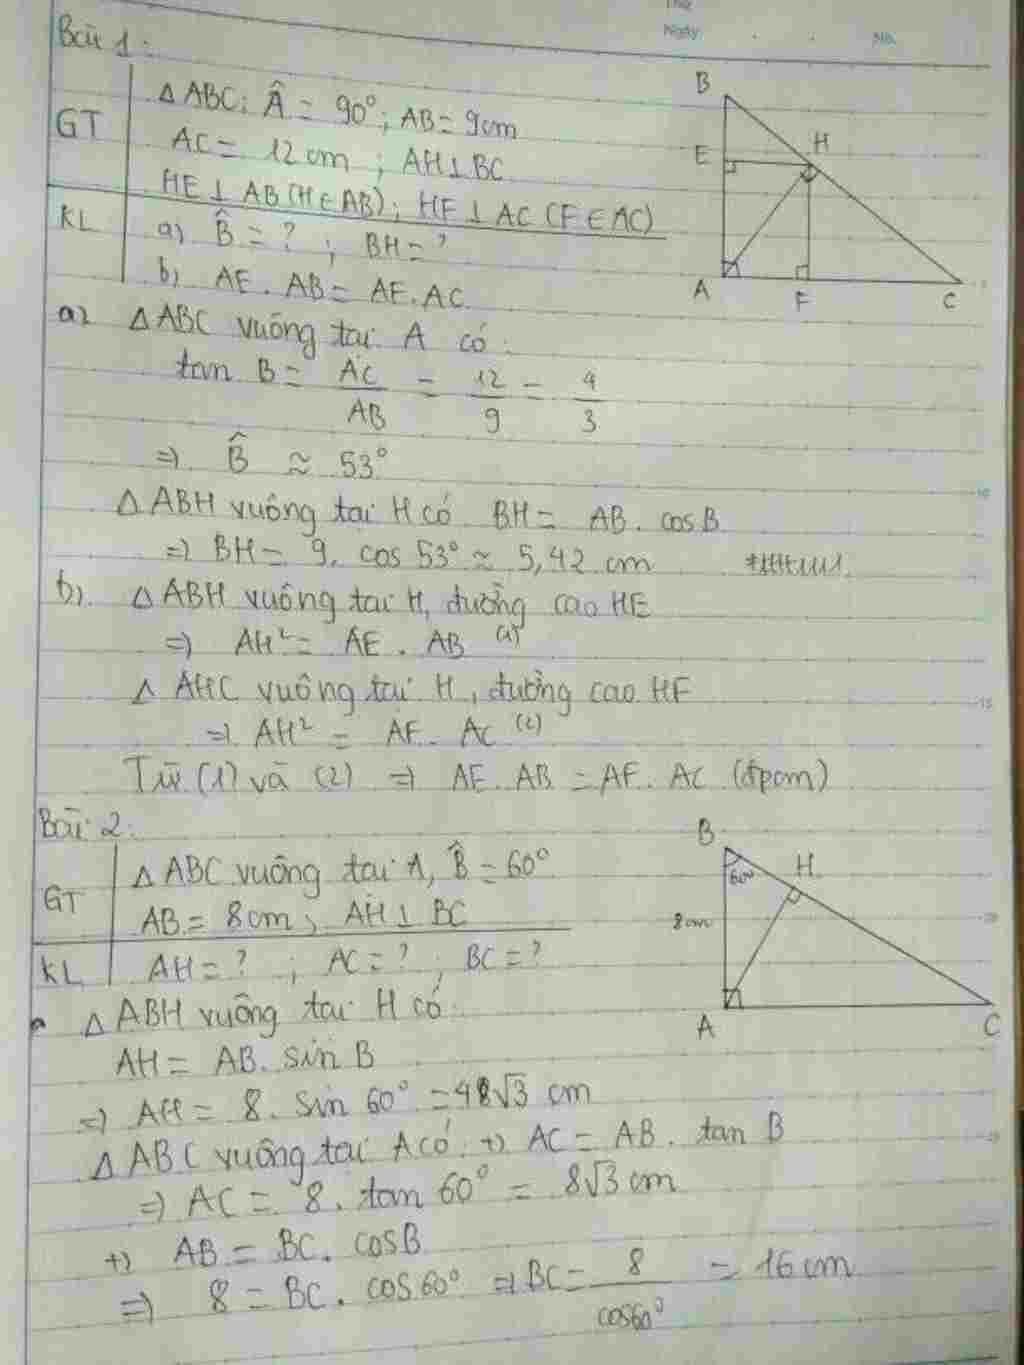 Thứ
Ngày . . No.
Bài 1:
GT
△ABC: Â = 90°; AB = 9cm
AC = 12 cm ; AH⊥BC
HE ⊥ AB (H∈AB); HF ⊥ AC (F∈AC)
KL
a) B̂ = ? ; BH = ?
b) AE . AB = AF . AC
B
E
H
A
F
C
a) △ABC vuông tại A có:
tan B = AC/AB = 12/9 = 4/3
⇒ B̂ ≈ 53°
△ABH vuông tại H có BH = AB. cosB
⇒ BH = 9. cos 53° ≈ 5,42 cm
b) △ABH vuông tại H, đường cao HE
⇒ AH² = AE . AB (1)
△ AHC vuông tại H, đường cao HF
⇒ AH² = AF . AC (2)
Từ (1) và (2) ⇒ AE . AB = AF . AC (đpcm)
Bài 2:
GT
△ABC vuông tại A, B̂ = 60°
AB = 8cm ; AH ⊥ BC
KL
AH = ? ; AC = ? ; BC = ?
B
60°
H
8cm
A
C
△ABH vuông tại H có:
AH = AB. sin B
⇒ AH = 8. sin 60° = 48√3 cm
△ABC vuông tại A có: +) AC = AB . tan B
⇒ AC = 8. tan 60° = 8√3 cm
+) AB = BC. cosB
⇒ 8 = BC . cos60° ⇒ BC = 8/cos60° = 16 cm